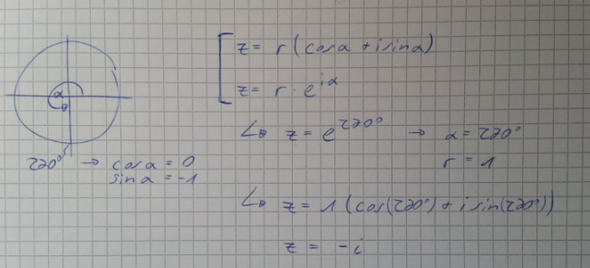 α
270° → cos α = 0
sin α = -1
z = r (cos α + i sin α)
z = r · e^{iα}
↳ z = e^{270°} → α = 270°
r = 1
↳ z = 1 (cos(270°) + i sin(270°))
z = -i